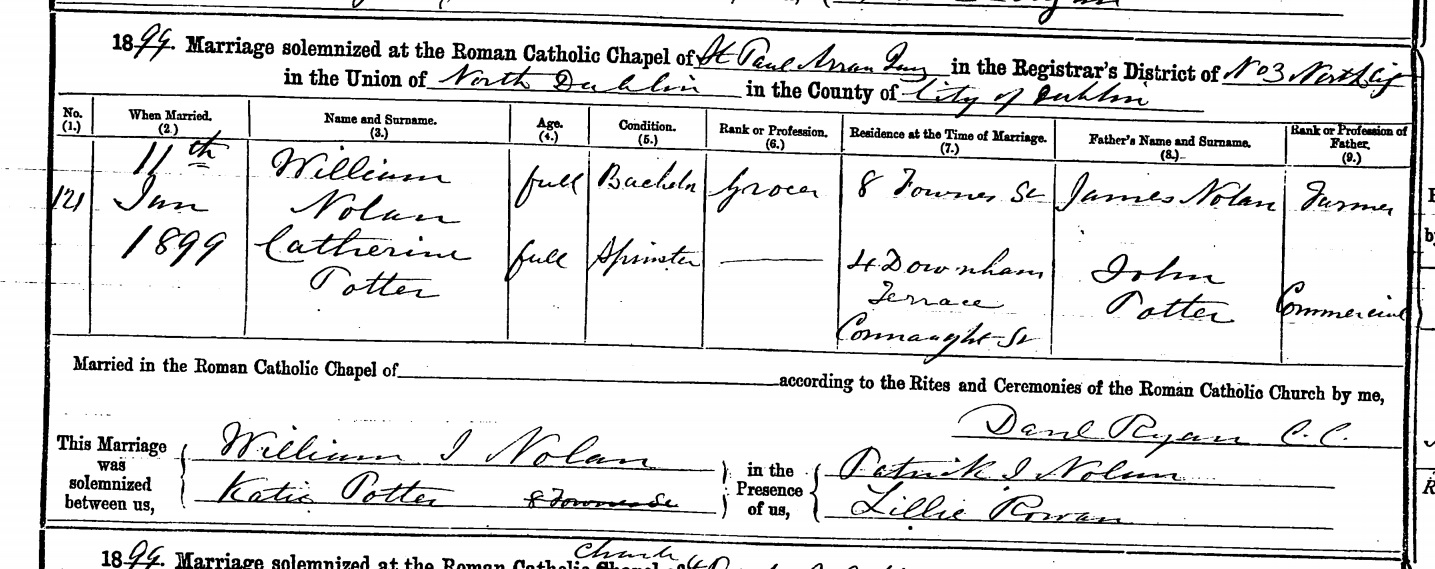 1899. Marriage solemnized at the Roman Catholic Chapel of St Paul Arran Quay in the Registrar's District of No 3 North City
in the Union of North Dublin in the County of City of Dublin
No. When Married. Name and Surname. Age. Condition. Rank or Profession. Residence at the Time of Marriage. Father's Name and Surname. Rank or Profession of Father.
(1.) (2.) (3.) (4.) (5.) (6.) (7.) (8.) (9.)
121 11th Jan 1899 William Nolan full Bachelor Grocer 8 Fownes St James Nolan Farmer
Catherine Potter full Spinster 4 Downham Terrace Connaught St John Potter Commercial
Married in the Roman Catholic Chapel of according to the Rites and Ceremonies of the Roman Catholic Church by me,
Danl Ryan C.C.
This Marriage was solemnized between us, William J Nolan in the Presence of us, Patrick J Nolan
Katie Potter 8 Fownes St Lillie Rowan
1899. Marriage solemnized at the Roman Catholic Chapel of
Church